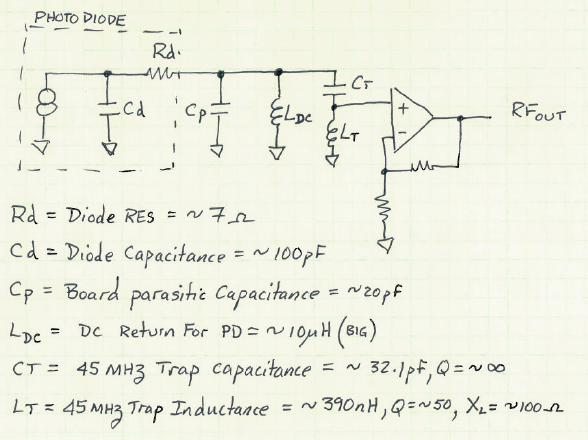 PHOTODIODE
Rd.
CT
Cd
Cp
LDC
LT
+
-
RFOUT
Rd = Diode RES = ~ 7 Ω
Cd = Diode Capacitance = ~ 100pF
Cp = Board parasitic Capacitance = ~20pF
LDC = DC Return For PD = ~ 10μH (BIG)
CT = 45 MHz Trap Capacitance = ~ 32.1pF, Q = ~ ∞
LT = 45 MHz Trap Inductance = ~ 390nH, Q = ~50, XL = ~100 Ω